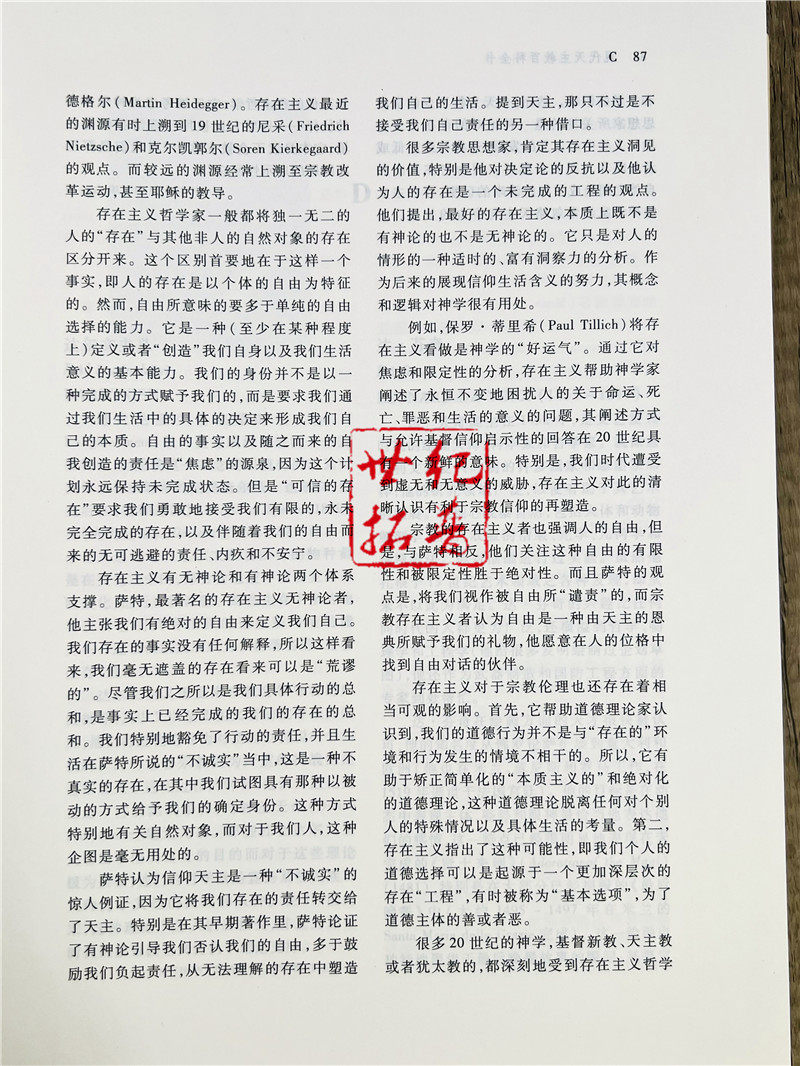 C 87
德格尔(Martin Heidegger)。存在主义最近
的渊源有时上溯到19世纪的尼采(Friedrich
Nietzsche)和克尔凯郭尔(Soren Kierkegaard)
的观点。而较远的渊源经常上溯至宗教改
革运动,甚至耶稣的教导。
存在主义哲学家一般都将独一无二的
人的“存在”与其他非人的自然对象的存在
区分开来。这个区别首要地在于这样一个
事实,即人的存在是以个体的自由为特征
的。然而,自由所意味的要多于单纯的自由
选择的能力。它是一种(至少在某种程度
上)定义或者“创造”我们自身以及我们生活
意义的基本能力。我们的身份并不是以一
种完成的方式赋予我们的,而是要求我们通
过我们生活中的具体的决定来形成我们自
己的本质。自由的事实以及随之而来的自
我创造的责任是“焦虑”的源泉,因为这个计
划永远保持未完成状态。但是“可信的存
在”要求我们勇敢地接受我们有限的,永未
完全完成的存在,以及伴随着我们的自由而
来的无可逃避的责任、内疚和不安宁。
存在主义有无神论和有神论两个体系
支撑。萨特,最著名的存在主义无神论者,
他主张我们有绝对的自由来定义我们自己。
我们存在的事实没有任何解释,所以这样看
来,我们毫无遮盖的存在看来可以是“荒谬
的”。尽管我们之所以是我们具体行动的总
和,是事实上已经完成的我们的存在的总
和。我们特别地豁免了行动的责任,并且生
活在萨特所说的“不诚实”当中,这是一种不
真实的存在,在其中我们试图具有那种以被
动的方式给予我们的确定身份。这种方式
特别地有关自然对象,而对于我们人,这种
企图是毫无用处的。
萨特认为信仰天主是一种“不诚实”的
惊人例证,因为它将我们存在的责任转交给
了天主。特别是在其早期著作里,萨特论证
了有神论引导我们否认我们的自由,多于鼓
励我们负起责任,从无法理解的存在中塑造
我们自己的生活。提到天主,那只不过是不
接受我们自己责任的另一种借口。
很多宗教思想家,肯定其存在主义洞见
的价值,特别是他对决定论的反抗以及他认
为人的存在是一个未完成的工程的观点。
他们提出,最好的存在主义,本质上既不是
有神论的也不是无神论的。它只是对人的
情形的一种适时的、富有洞察力的分析。作
为后来的展现信仰生活含义的努力,其概念
和逻辑对神学很有用处。
例如,保罗·蒂里希(Paul Tillich)将存
在主义看做是神学的“好运气”。通过它对
焦虑和限定性的分析,存在主义帮助神学家
阐述了永恒不变地困扰人的关于命运、死
亡、罪恶和生活的意义的问题,其阐述方式
与允许基督信仰启示性的回答在20世纪具
有一个新鲜的意味。特别是,我们时代遭受
到虚无和无意义的威胁,存在主义对此的清
晰认识有利于宗教信仰的再塑造。
宗教的存在主义者也强调人的自由,但
是,与萨特相反,他们关注这种自由的有限
性和被限定性胜于绝对性。而且萨特的观
点是,将我们视作被自由所“谴责”的,而宗
教存在主义者认为自由是一种由天主的恩
典所赋予我们的礼物,他愿意在人的位格中
找到自由对话的伙伴。
存在主义对于宗教伦理也还存在着相
当可观的影响。首先,它帮助道德理论家认
识到,我们的道德行为并不是与“存在的”环
境和行为发生的情境不相干的。所以,它有
助于矫正简单化的“本质主义的”和绝对化
的道德理论,这种道德理论脱离任何对个别
人的特殊情况以及具体生活的考量。第二,
存在主义指出了这种可能性,即我们个人的
道德选择可以是起源于一个更加深层次的
存在“工程”,有时被称为“基本选项”,为了
道德主体的善或者恶。
很多20世纪的神学,基督新教、天主教
或者犹太教的,都深刻地受到存在主义哲学
世纪
拓普